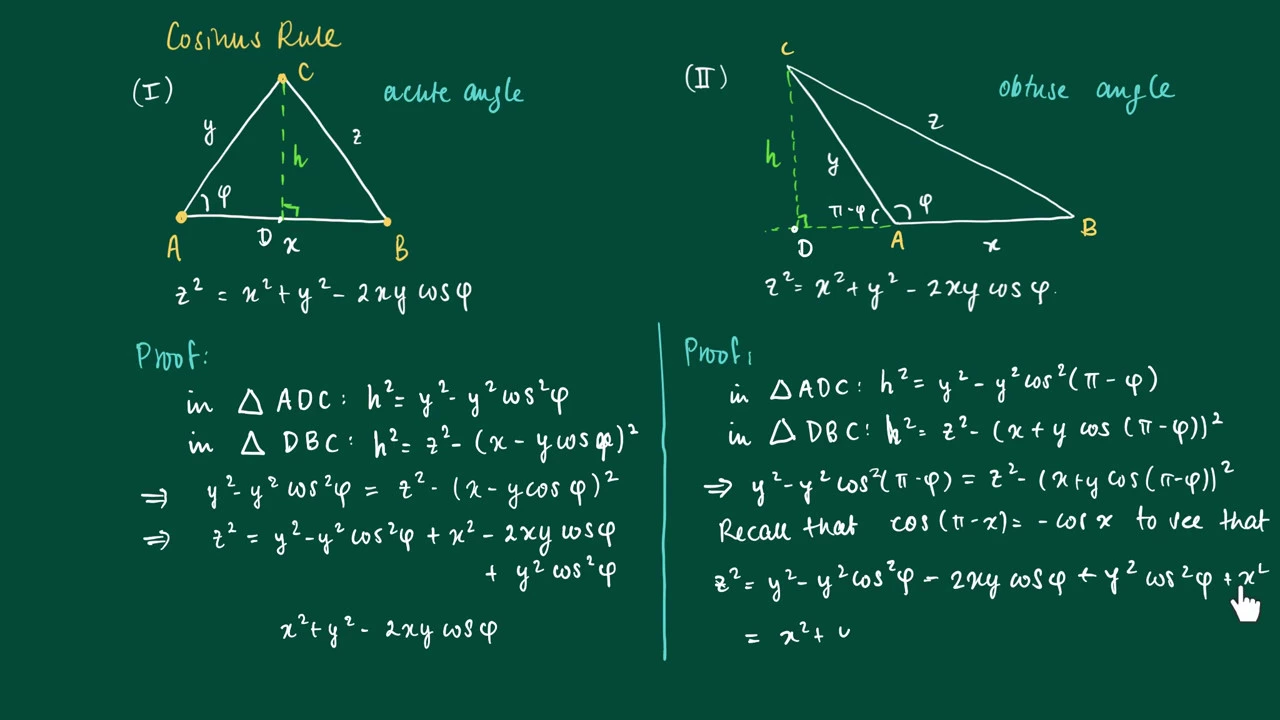 Cosinus Rule
(I)
acute angle
C
y
z
h
φ
A
D
x
B
z² = x² + y² - 2xy cos φ
Proof:
in △ ADC: h² = y² - y² cos²φ
in △ DBC: h² = z² - (x - y cos φ)²
⇒ y² - y² cos²φ = z² - (x - y cos φ)²
⇒ z² = y² - y² cos²φ + x² - 2xy cos φ
+ y² cos²φ
x² + y² - 2xy cos φ
(II)
obtuse angle
C
z
h
y
π-φ
φ
D
A
x
B
z² = x² + y² - 2xy cos φ.
Proof:
in △ ADC: h² = y² - y² cos²(π - φ)
in △ DBC: h² = z² - (x + y cos (π - φ))²
⇒ y² - y² cos²(π - φ) = z² - (x + y cos(π - φ))²
Recall that cos(π - x) = - cos x to see that
z² = y² - y² cos²φ - 2xy cos φ + y² cos²φ + x²
= x² +